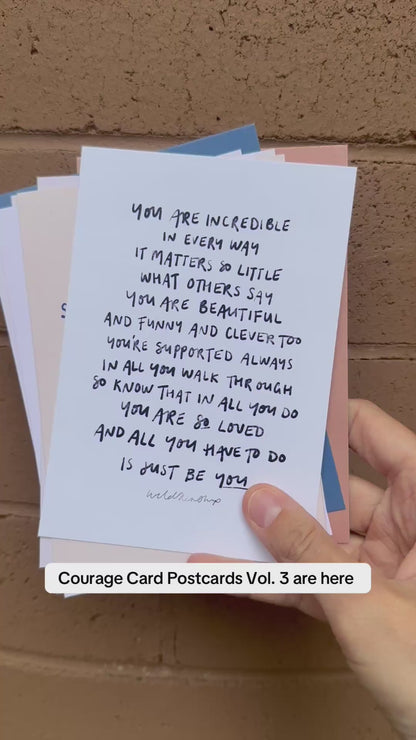 YOU ARE INCREDIBLE
IN EVERY WAY
IT MATTERS SO LITTLE
WHAT OTHERS SAY
YOU ARE BEAUTIFUL
AND FUNNY AND CLEVER TOO
YOU'RE SUPPORTED ALWAYS
IN ALL YOU WALK THROUGH
SO KNOW THAT IN ALL YOU DO
YOU ARE SO LOVED
AND ALL YOU HAVE TO DO
IS JUST BE YOU
Courage Card Postcards Vol. 3 are here